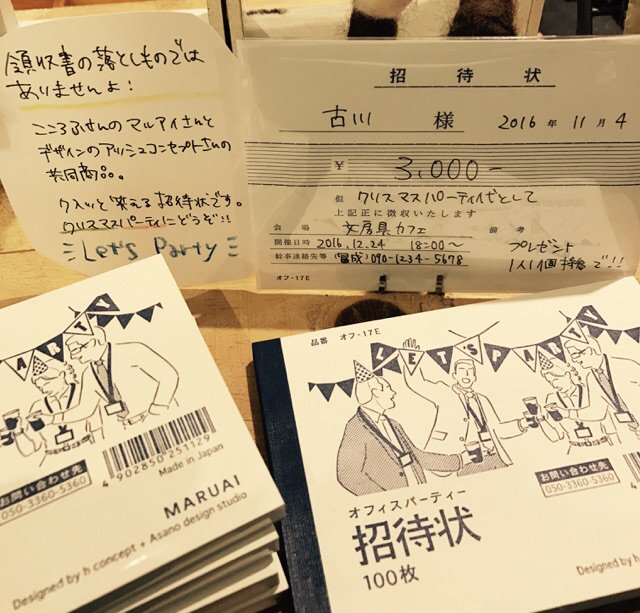 領収書の落としものでは
ありませんよ!
こころふせんのマルアイさんと
デザインのアッシュコンセプトさんの
共同商品。
クスッと笑える招待状です。
クリスマスパーティにどうぞ!!
Let's Party
招待状
古川 様 2016年11月4
¥ 3,000-
但 クリスマスパーティ代として
上記正に徴収いたします
会場 文房具カフェ 備考
開催日時 2016.12.24 18:00〜 プレゼント
幹事連絡先等 090-1234-5678 1人1個持参で!!
オフ-17E
ARTY
4902850251129
Made in Japan
お問い合わせ先
050-3360-5360
MARUAI
Designed by h concept + Asano design studio
品番 オフ-17E
LET'S PARTY
オフィスパーティー
招待状
100枚
お問い合わせ先
050-3360-5360
Designed by h con